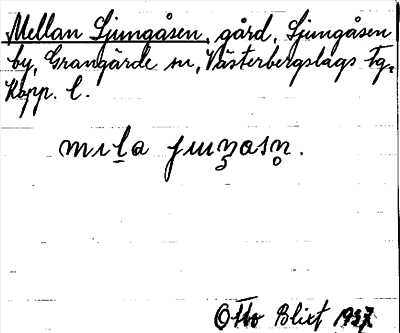 Mellan Ljungåsen, gård, Ljungåsen
by, Grangärde sn, Västerbergslags Fg.
Kopp. l.
Otto Blixt 1927